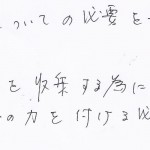 ついての必要を
を収集する為に
の力を付ける必